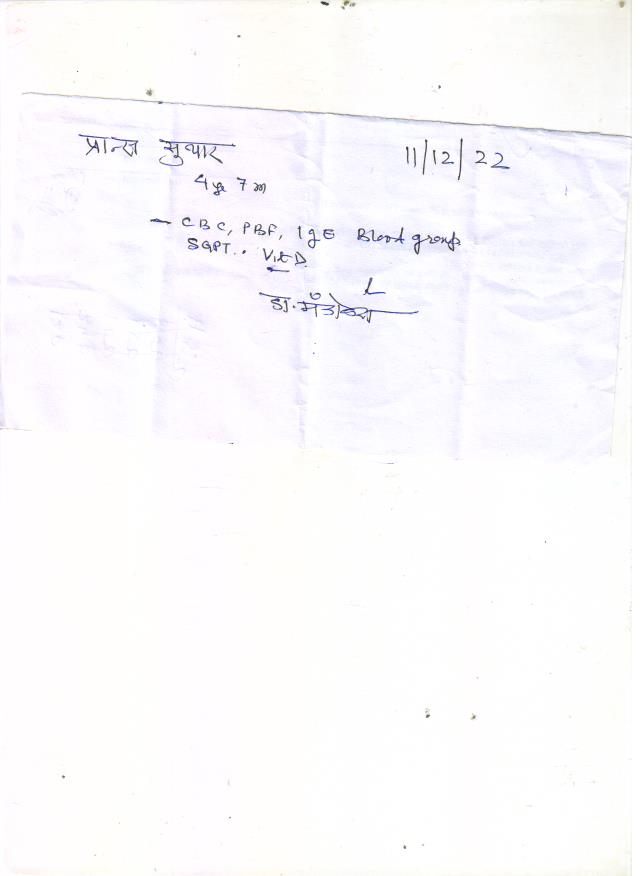 प्रान्स सुथार 11/12/22
4 yr 7 m
- CBC, PBF, IgE Blood group
SGPT.. Vit D.
डा.